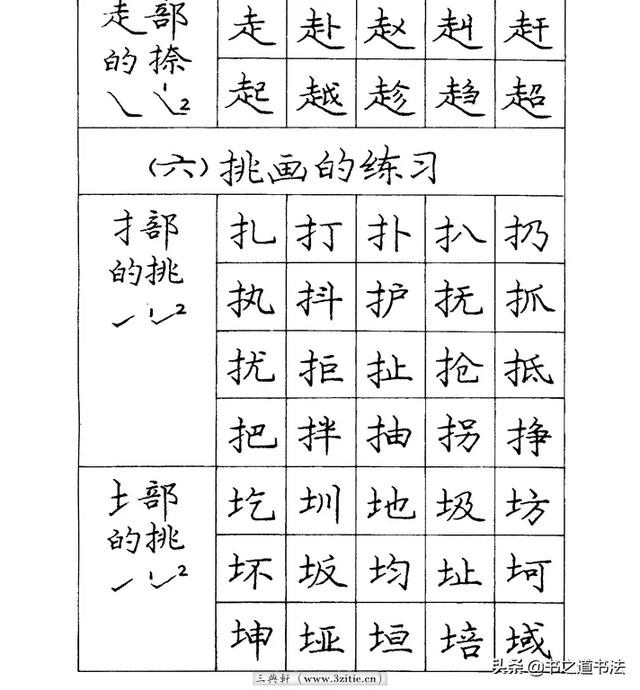 走部
的捺
走赴赵赳赶
起越趁趋超
(六)挑画的练习
扌部
的挑
1 2
扎打扑扒扔
执抖护抚抓
扰拒扯抢抵
把拌抽拐挣
土部
的挑
1 2
圪圳地圾坊
坏坂均址坷
坤垭垣培域
三典轩(www.3zitie.cn)
头条@书之道书法